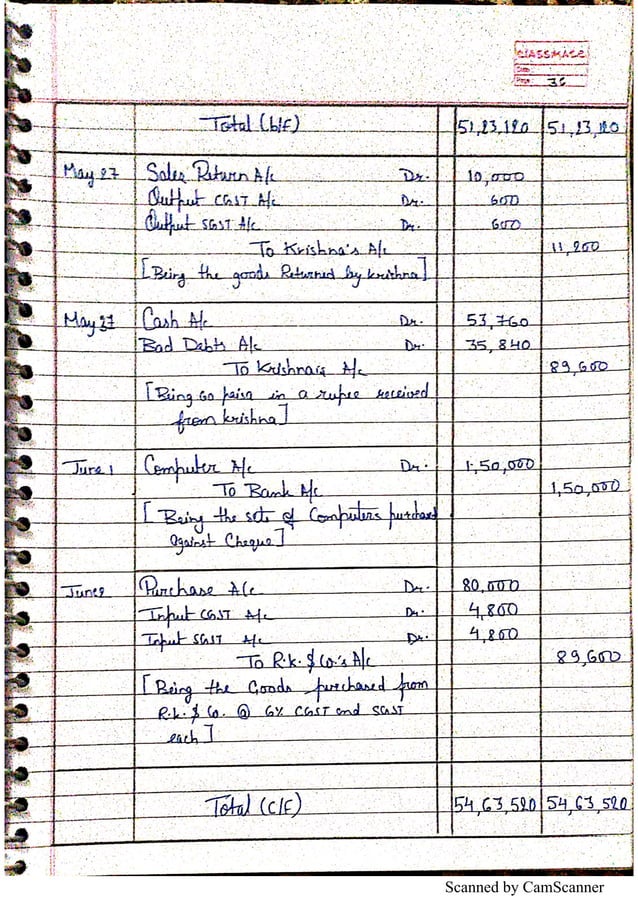 CLASSMATE
Date
Page 36
Total (b/f) 51,23,120 51,23,120
May 27 Sales Return A/c Dr. 10,000
Output CGST A/c Dr. 600
Output SGST A/c Dr. 600
To Krishna's A/c 11,200
[Being the goods Returned by krishna]
May 27 Cash A/c Dr. 53,760
Bad Debts A/c Dr. 35,840
To Krishna's A/c 89,600
[Being 60 paisa in a rupee received
from krishna]
June 1 Computer A/c Dr. 1,50,000
To Bank A/c 1,50,000
[Being the sets of Computers purchased
against Cheque]
June 2 Purchase A/c Dr. 80,000
Input CGST A/c Dr. 4,800
Input SGST A/c Dr. 4,800
To R.k. & Co.'s A/c 89,600
[Being the Goods purchased from
R.k. & Co. @ 6% CGST and SGST
each]
Total (C/F) 54,63,520 54,63,520
Scanned by CamScanner